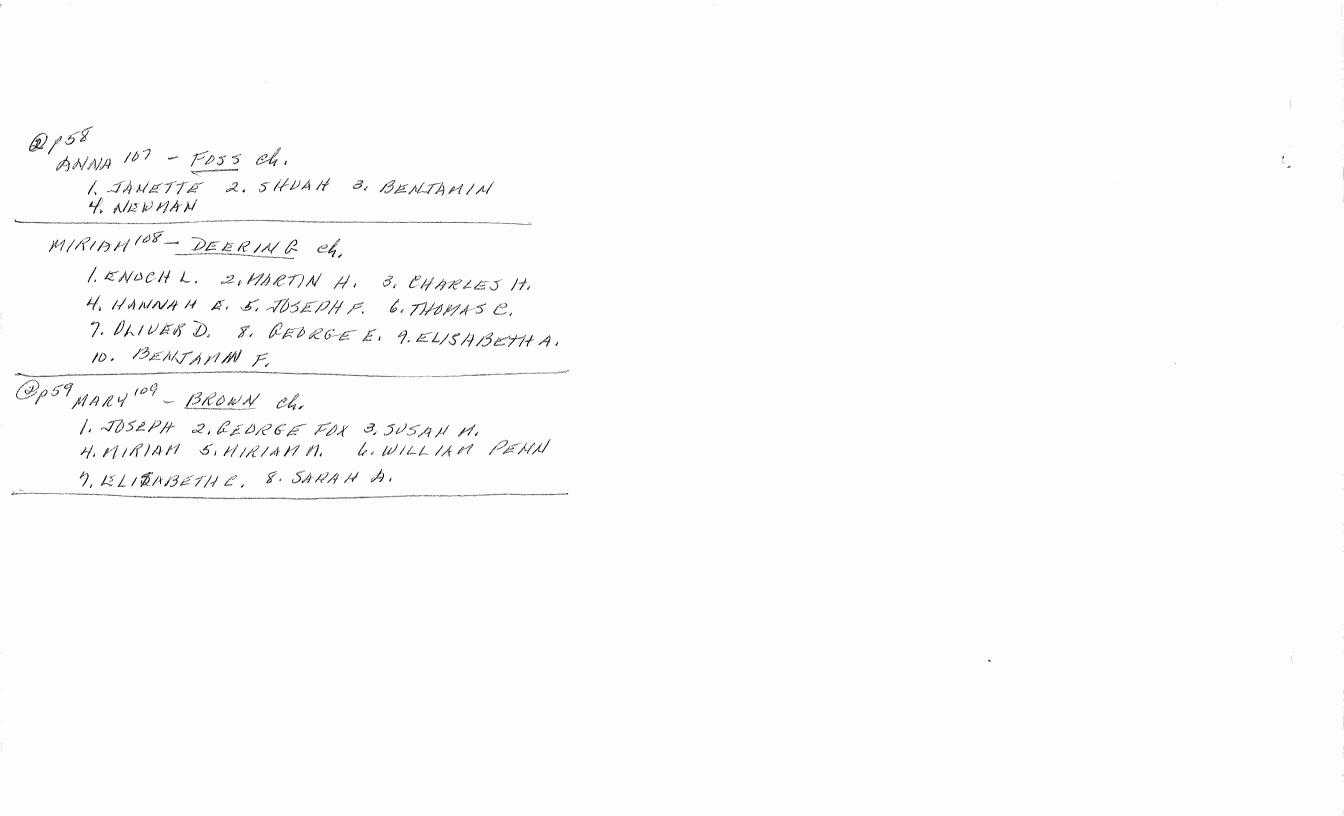 ② p58
ANNA 107 - FOSS ch.
1. JANETTE 2. SHUAH 3. BENJAMIN
4. NEWMAN
MIRIAM 108 - DEERING ch.
1. ENOCH L. 2. MARTIN H. 3. CHARLES H.
4. HANNAH E. 5. JOSEPH F. 6. THOMAS C.
7. OLIVER D. 8. GEORGE E. 9. ELISABETH A.
10. BENJAMIN F.
② p59 MARY 109 - BROWN ch.
1. JOSEPH 2. GEORGE FOX 3. SUSAN M.
4. MIRIAM 5. MIRIAM M. 6. WILLIAM PENN
7. ELISABETH C. 8. SARAH A.